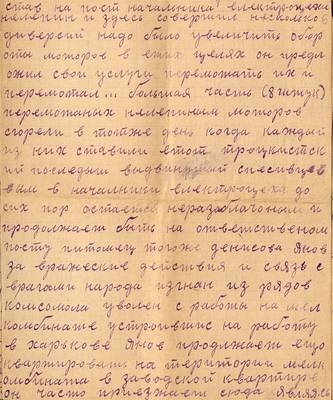 став на пост начальника електроцеха
нелепин и здесь совершил несколько
диверсий надо было увеличить обор
оты моторов в етих целях он предл
ожил свои услуги перемотать их и
перемотал... большая часть (8 штук)
перемотаных нелепиным моторов
сгорели в тотже день когда каждый
из них ставили етот троцкистск
ий последыш выдвинутый спесивце
вым в начальники електроцеха до
сих пор остается неразаблаченым и
продолжает быть на ответственом
посту питомец тогоже денисова янов
за вражеские действия и связь с
врагами народа изгнан из рядов
комсомола уволен с работы на мел
комбинате устроившис на работу
в харькове янов продолжает ещо
квартировать на територии мелк
омбината в заводской квартире
он часто приезжает сюда являясь